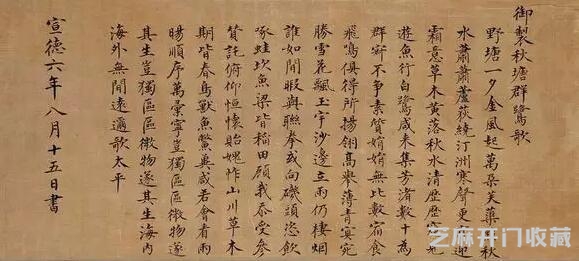 御製秋塘群鷺歌
野塘一夕金風起萬朵芙蓉照秋
水蕭蕭蘆荻繞汀洲寒聲更迎
霜意草木黄落秋水清歷歷見
遊魚行白鷺咸来集芳渚數十為
群寂不爭素質娟娟無比數宿食
飛鳴俱得所揚翎高舉薄青冥宛
勝雪花飄玉宇沙邊立雨仍棲烟
誰如閒暇與聯拳或向磯頭恣飲
啄蛙坎魚梁皆稻田顧我忝受參
贊託俯仰恒懷貽媿怍山川草木
期皆春鳥獸魚鱉冀咸若會看雨
暘順序萬彙寧豈獨區區微物遂
其生豈獨區區微物遂其生海内
海外無間遠邇歌太平
宣德六年八月十五日書
芝麻开门收藏